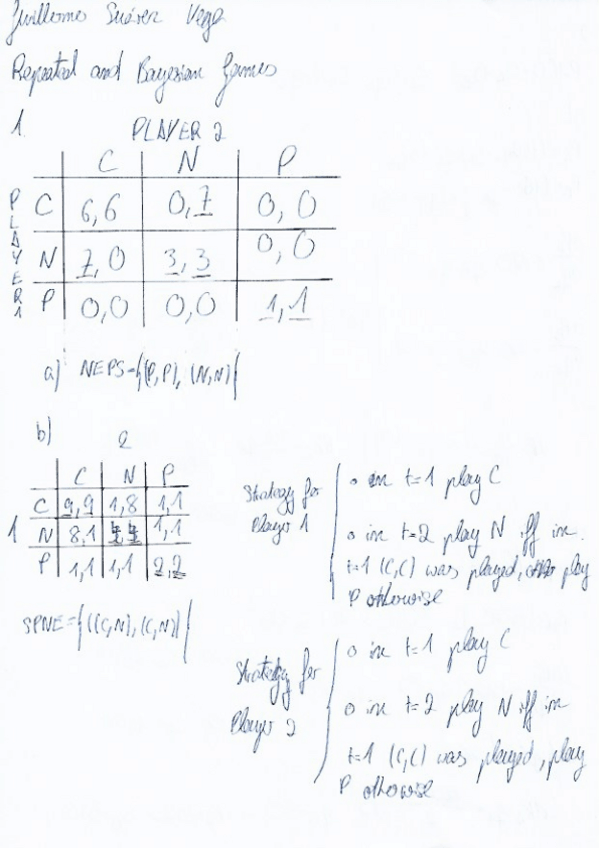 Guillermo Suárez Vega
Repeated and Bayesian Games
1. PLAYER 2
C N P
PLAYER 1
C 6,6 0,7 0,0
N 7,0 3,3 0,0
P 0,0 0,0 1,1
a) NEPS={(P,P), (N,N)}
b) 2
C N P
C 9,9 1,8 1,1
1 N 8,1 4,4 1,1
P 1,1 1,1 2,2
SPNE={((C,N),(C,N))}
Strategy for
Player 1
o in t=1 play C
o in t=2 play N iff in
t=1 (C,C) was played, play
P otherwise
Strategy for
Player 2
o in t=1 play C
o in t=2 play N iff in
t=1 (C,C) was played, play
P otherwise